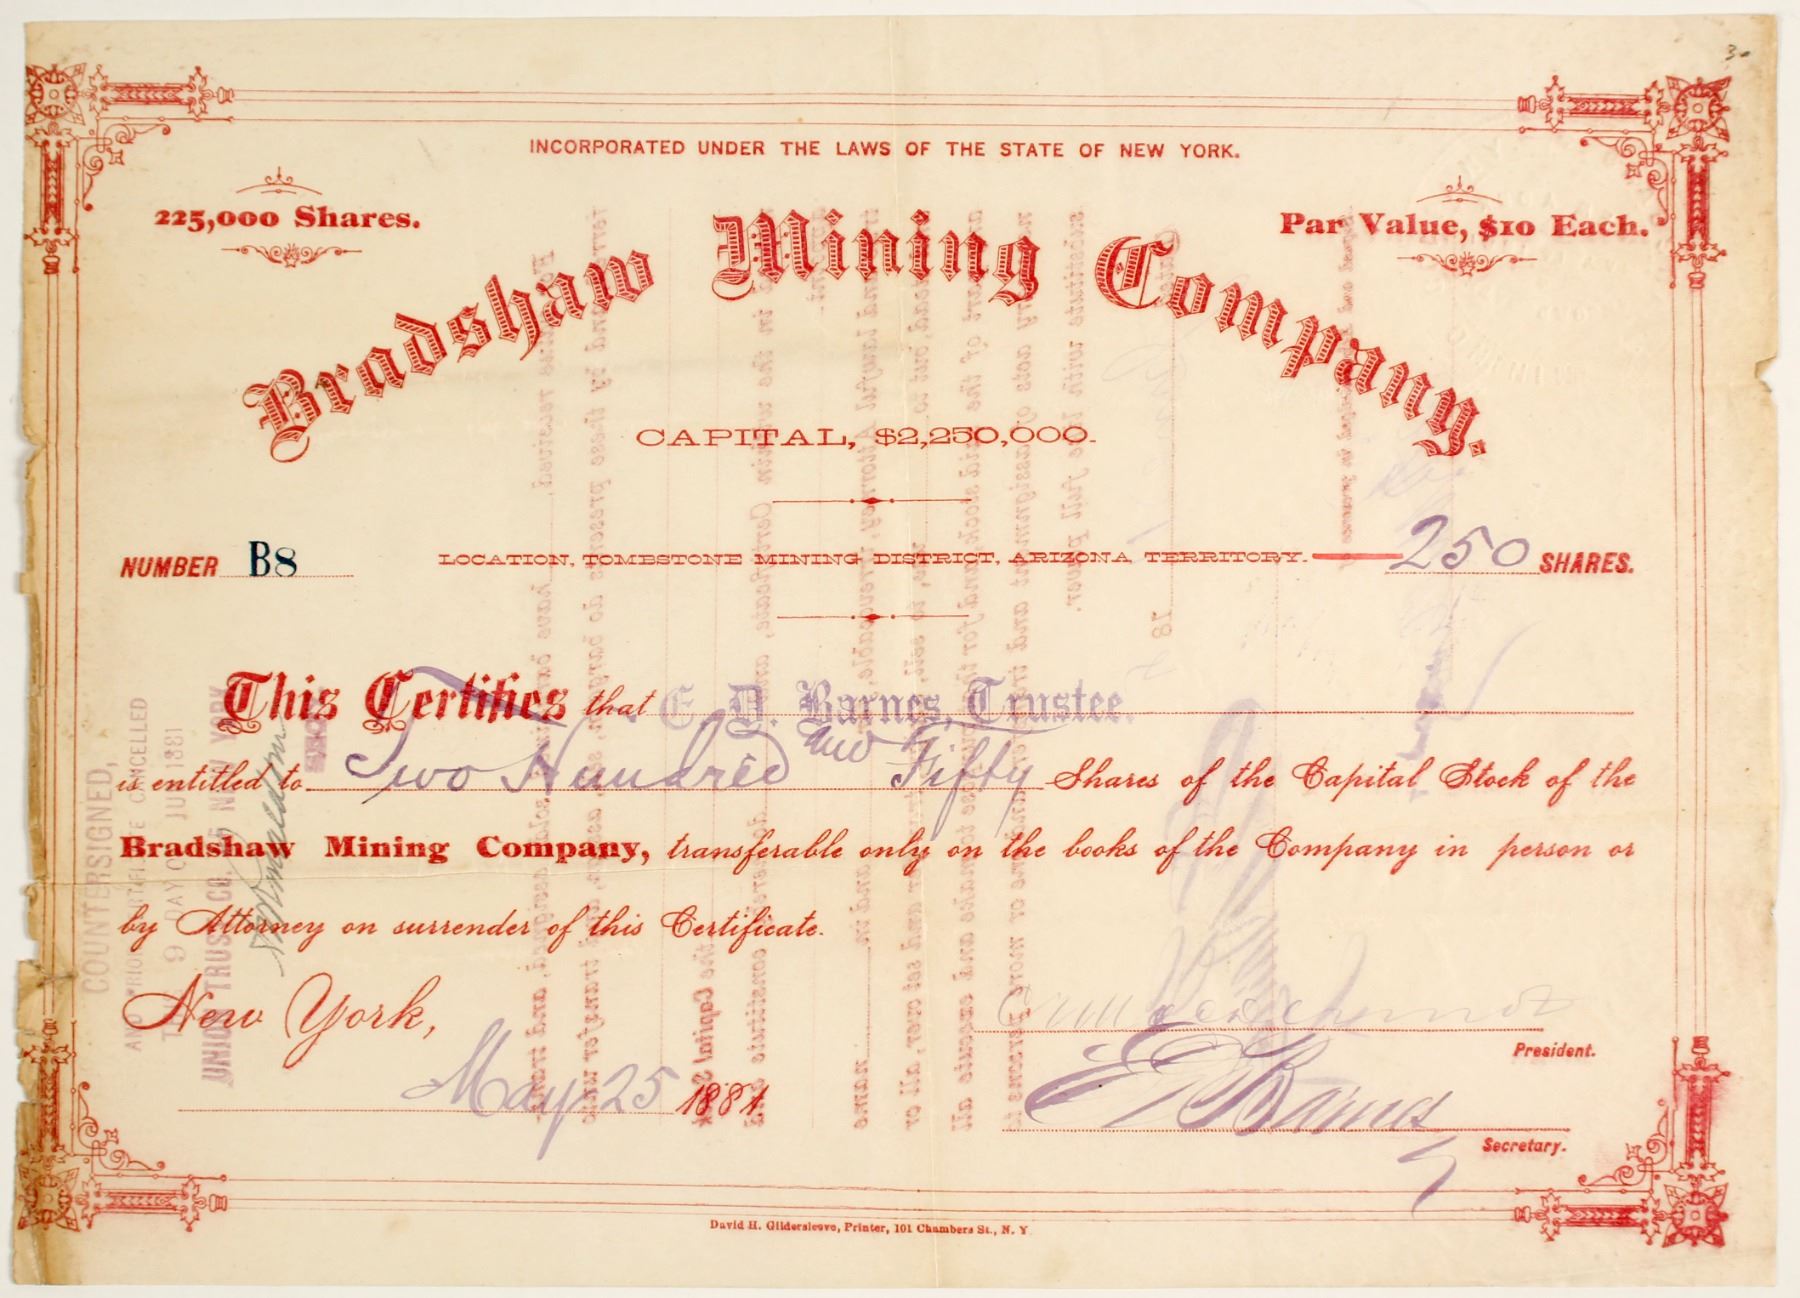 INCORPORATED UNDER THE LAWS OF THE STATE OF NEW YORK.
225,000 Shares.
Par Value, $10 Each.
Bradshaw Mining Company.
CAPITAL, $2,250,000.
NUMBER B8
LOCATION, TOMBSTONE MINING DISTRICT, ARIZONA TERRITORY.
250 SHARES.
This Certifies that E. D. Barnes, Trustee.
is entitled to Two Hundred and Fifty Shares of the Capital Stock of the
Bradshaw Mining Company, transferable only on the books of the Company in person or
by Attorney on surrender of this Certificate.
New York,
May 25 1881
President.
E D Barnes
Secretary.
David H. Gildersleeve, Printer, 101 Chambers St., N. Y.
COUNTERSIGNED,
AND PRIOR CERTIFICATE CANCELLED
9 DAY OF 1881
UNION TRUST CO. OF NEW YORK